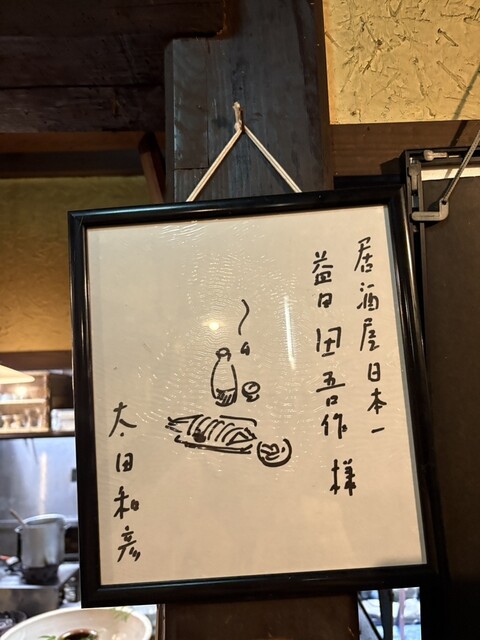 居酒屋日本一
益田 田吾作 様
太田和彦